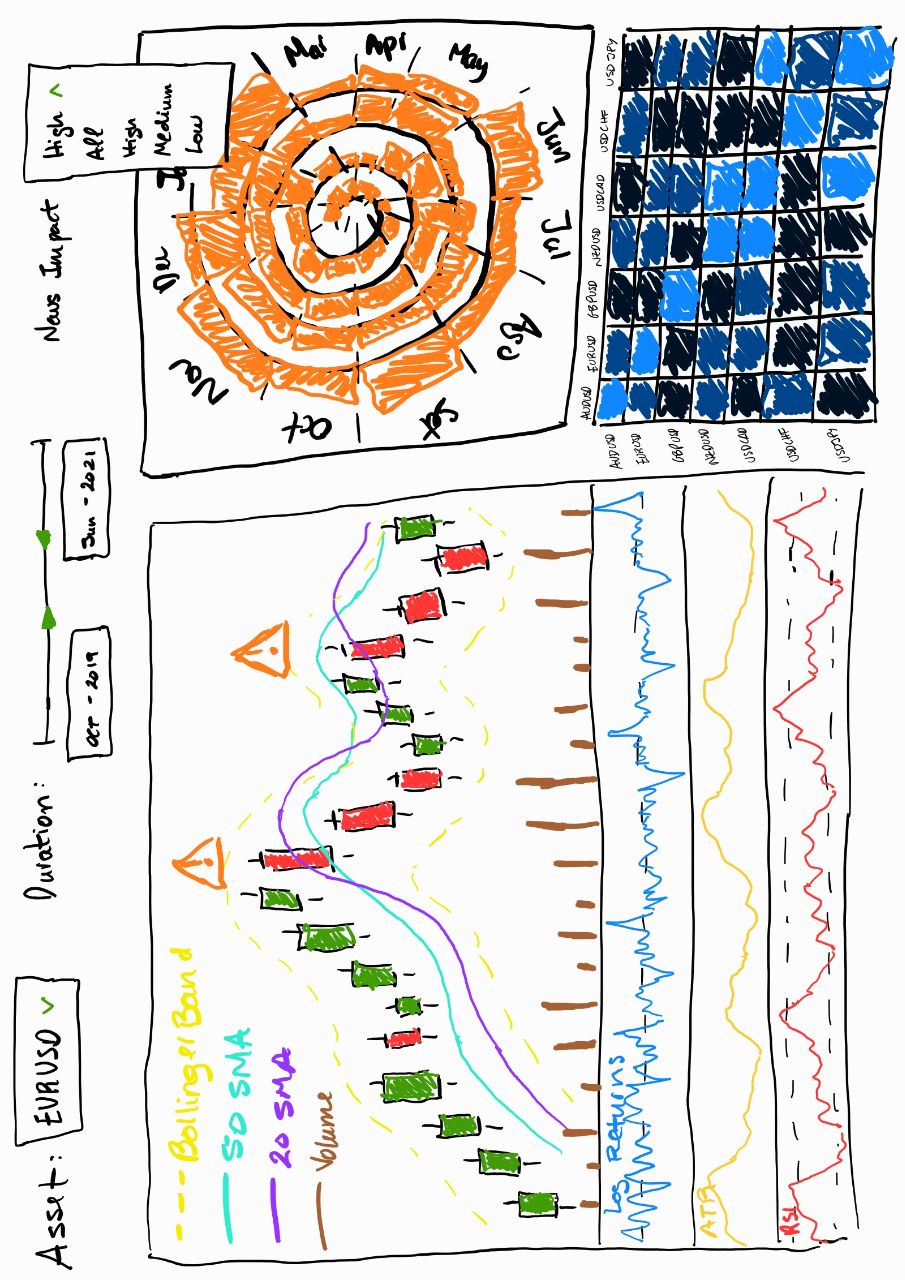 Asset:
EURUSD
Duration:
Oct - 2019
Jun - 2021
News Impact
High
All
High
Medium
Low
Bollinger Band
50 SMA
20 SMA
Volume
Log Returns
ATR
RSI
Nov
Dec
Oct
Aug
Jul
Jun
May
AUDUSD
EURUSD
GBPUSD
NZDUSD
USDCAD
USDCHF
USDJPY
AUDUSD
EURUSD
GBPUSD
NZDUSD
USDCAD
USDCHF
USDJPY